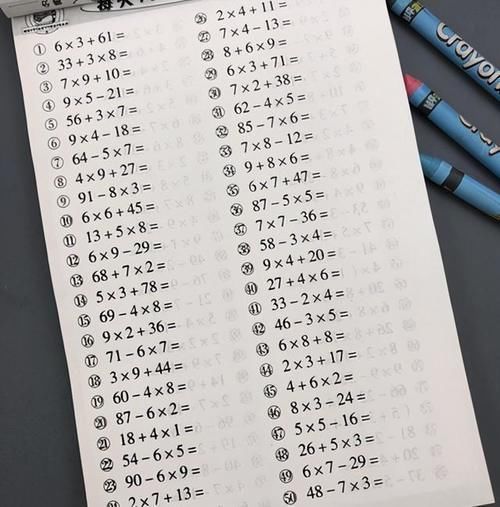 ① 6×3+61=
② 33+3×8=
③ 7×9+10=
④ 9×5-21=
⑤ 56+3×7=
⑥ 9×4-18=
⑦ 64-5×7=
⑧ 4×9+27=
⑨ 91-8×3=
⑩ 6×6+45=
⑪ 13+5×8=
⑫ 6×9-29=
⑬ 68+7×2=
⑭ 5×3+78=
⑮ 69-4×8=
⑯ 9×2+36=
⑰ 71-6×7=
⑱ 3×9+44=
⑲ 60-4×8=
⑳ 87-6×2=
㉑ 18+4×1=
㉒ 54-6×5=
㉓ 90-6×9=
2×7+13=
㉖ 2×4+11=
㉗ 7×4-13=
㉘ 8+6×9=
㉙ 6×3+71=
㉚ 7×2+38=
㉛ 62-4×5=
㉜ 85-7×6=
㉝ 7×8-12=
㉞ 9+8×6=
㉟ 6×7+47=
㊱ 87-5×5=
㊲ 7×7-36=
㊳ 58-3×4=
㊴ 9×4+20=
㊵ 27+4×6=
㊶ 33-2×4=
㊷ 46-3×5=
㊸ 6×8+8=
㊹ 2×3+17=
㊺ 4+6×2=
㊻ 8×3-24=
㊼ 5×5-16=
㊽ 26+5×3=
㊾ 6×7-29=
㊿ 48-7×3=
Crayon
Crayon